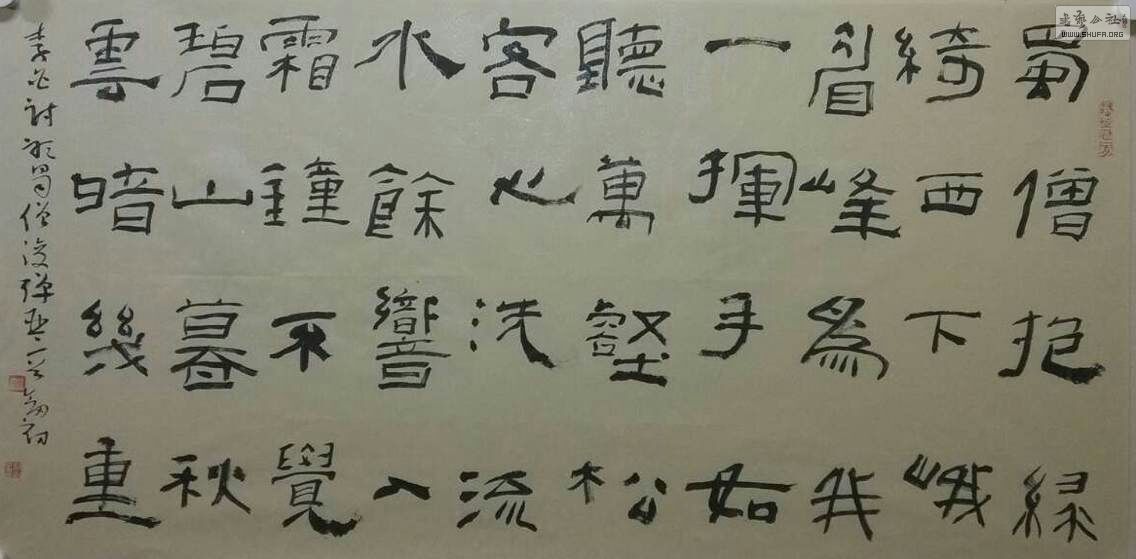 蜀僧抱緑
綺西下峨
眉峰爲我
一揮手如
聽萬壑松
客心洗流
水餘響入
霜鐘不覺
碧山暮秋
雲暗幾重
李白詩聽蜀僧浚弹琴一首
书艺公社
WWW.SHUFA.ORG